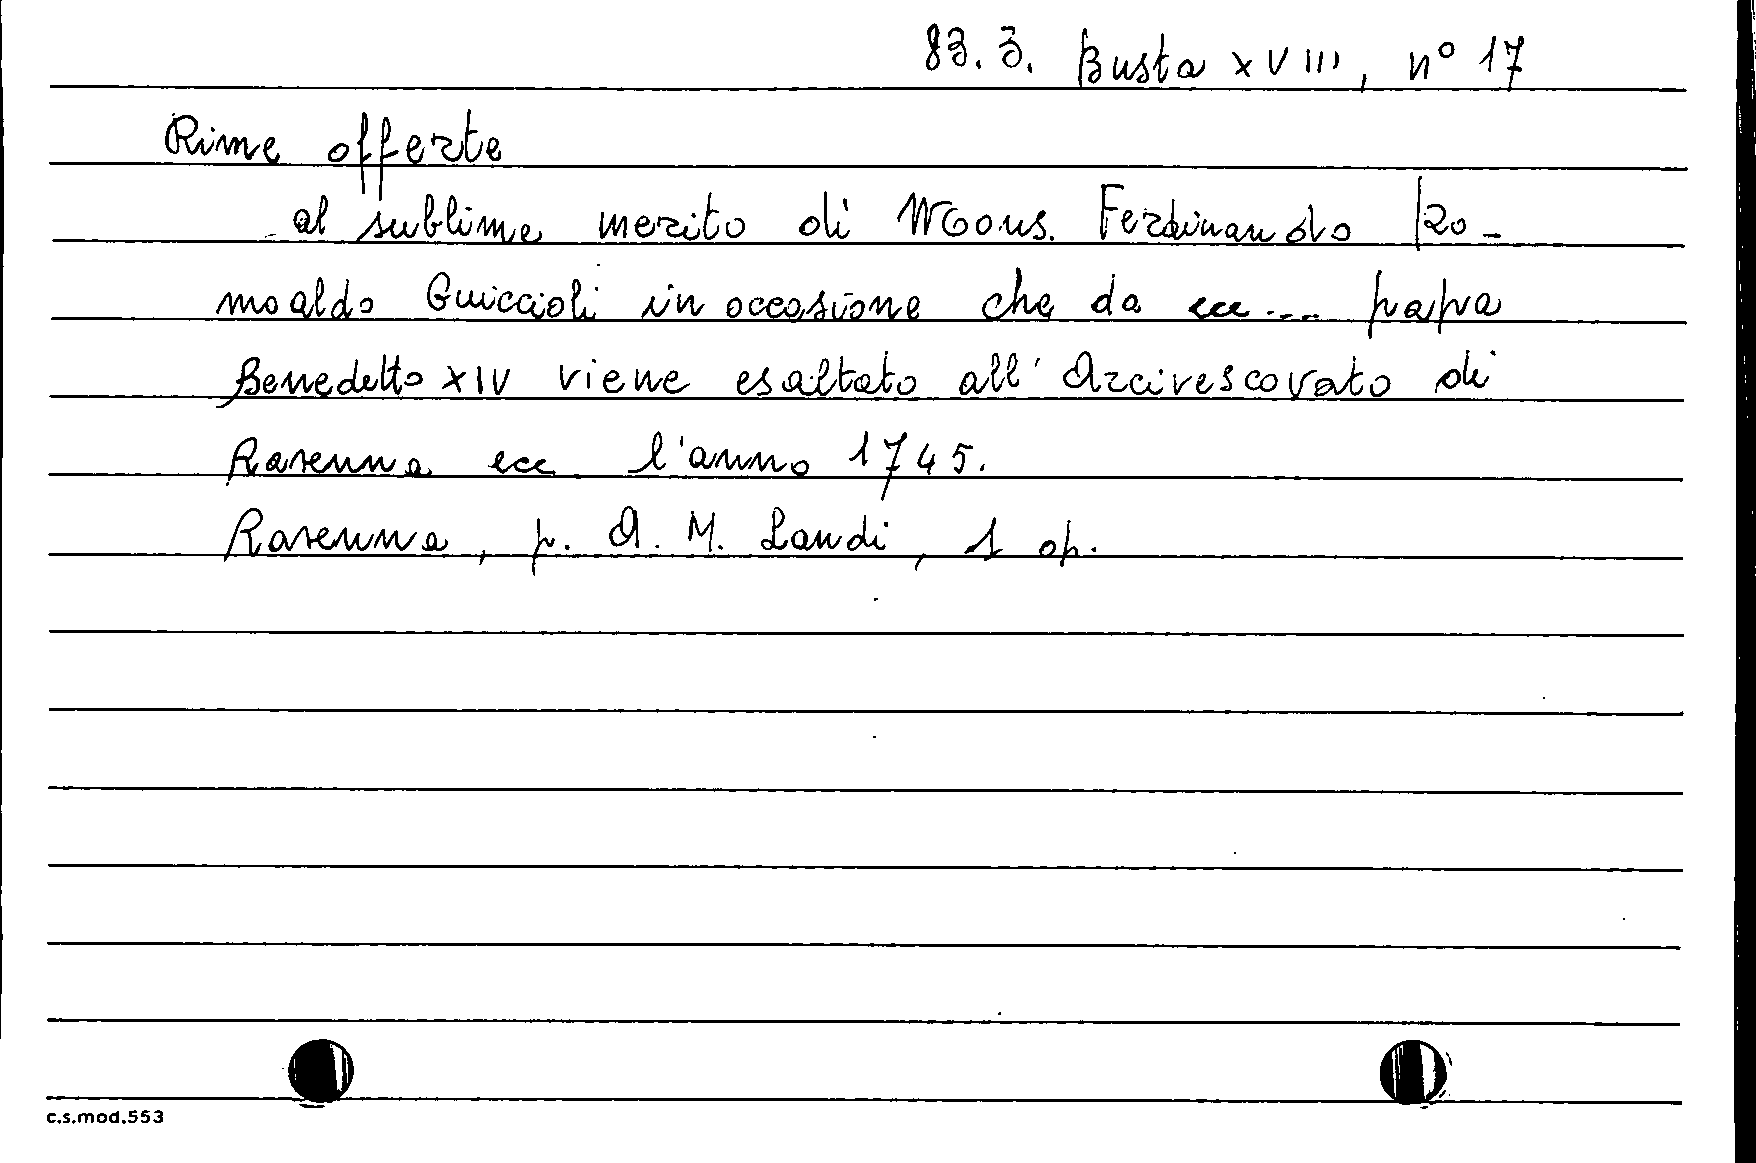 83. 3. Busta XVIII, n° 17
Rime offerte
al sublime merito di Mons. Ferdinando Ro-
moaldo Guiccioli in occasione che da ecc.... papa
Benedetto XIV viene esaltato all'Arcivescovato di
Ravenna ecc l'anno 1745.
Ravenna, p. A. M. Landi, 1 op.
c.s.mod.553